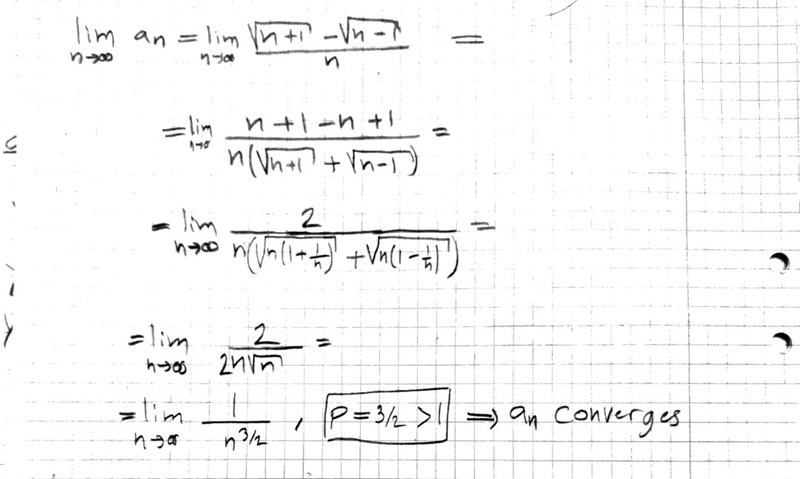 lim n→∞ an = lim n→∞ (√(n+1) - √(n-1))/n =
= lim n→∞ (n+1-n+1)/(n(√(n+1) + √(n-1))) =
= lim n→∞ 2/(n(√(n(1+1/n)) + √(n(1-1/n)))) =
= lim n→∞ 2/(2n√n) =
= lim n→∞ 1/n^(3/2) , P = 3/2 > 1 ⇒ an converges